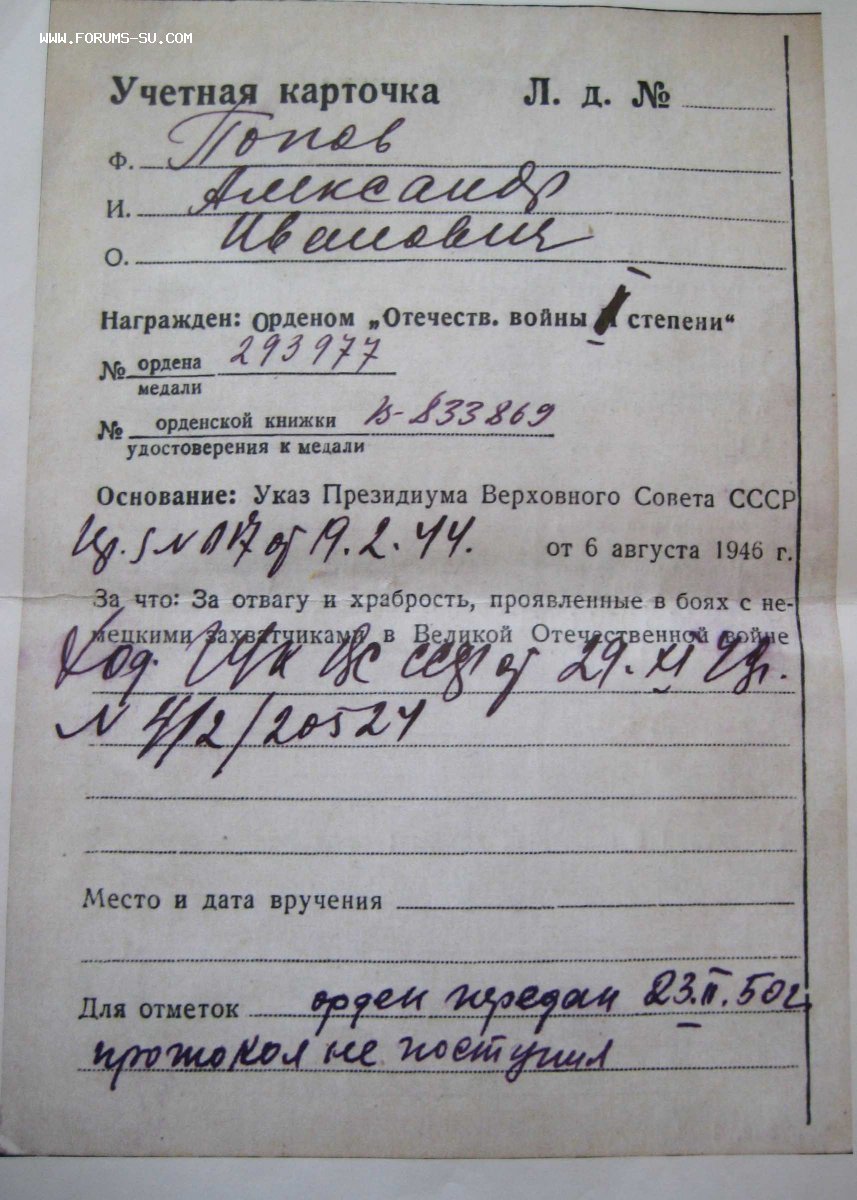 WWW.FORUMS-SU.COM
Учетная карточка Л. д. №
Ф. Попов
И. Александр
О. Иванович
Награжден: Орденом „Отечеств. войны I степени“
№ ордена 293977
медали
№ орденской книжки В-833869
удостоверения к медали
Основание: Указ Президиума Верховного Совета СССР
от 19.2.44. от 6 августа 1946 г.
За что: За отвагу и храбрость, проявленные в боях с не-
мецкими захватчиками в Великой Отечественной войне
от 29. XI
N
Место и дата вручения
Для отметок орден передан 23.II.50г.
протокол не поступил